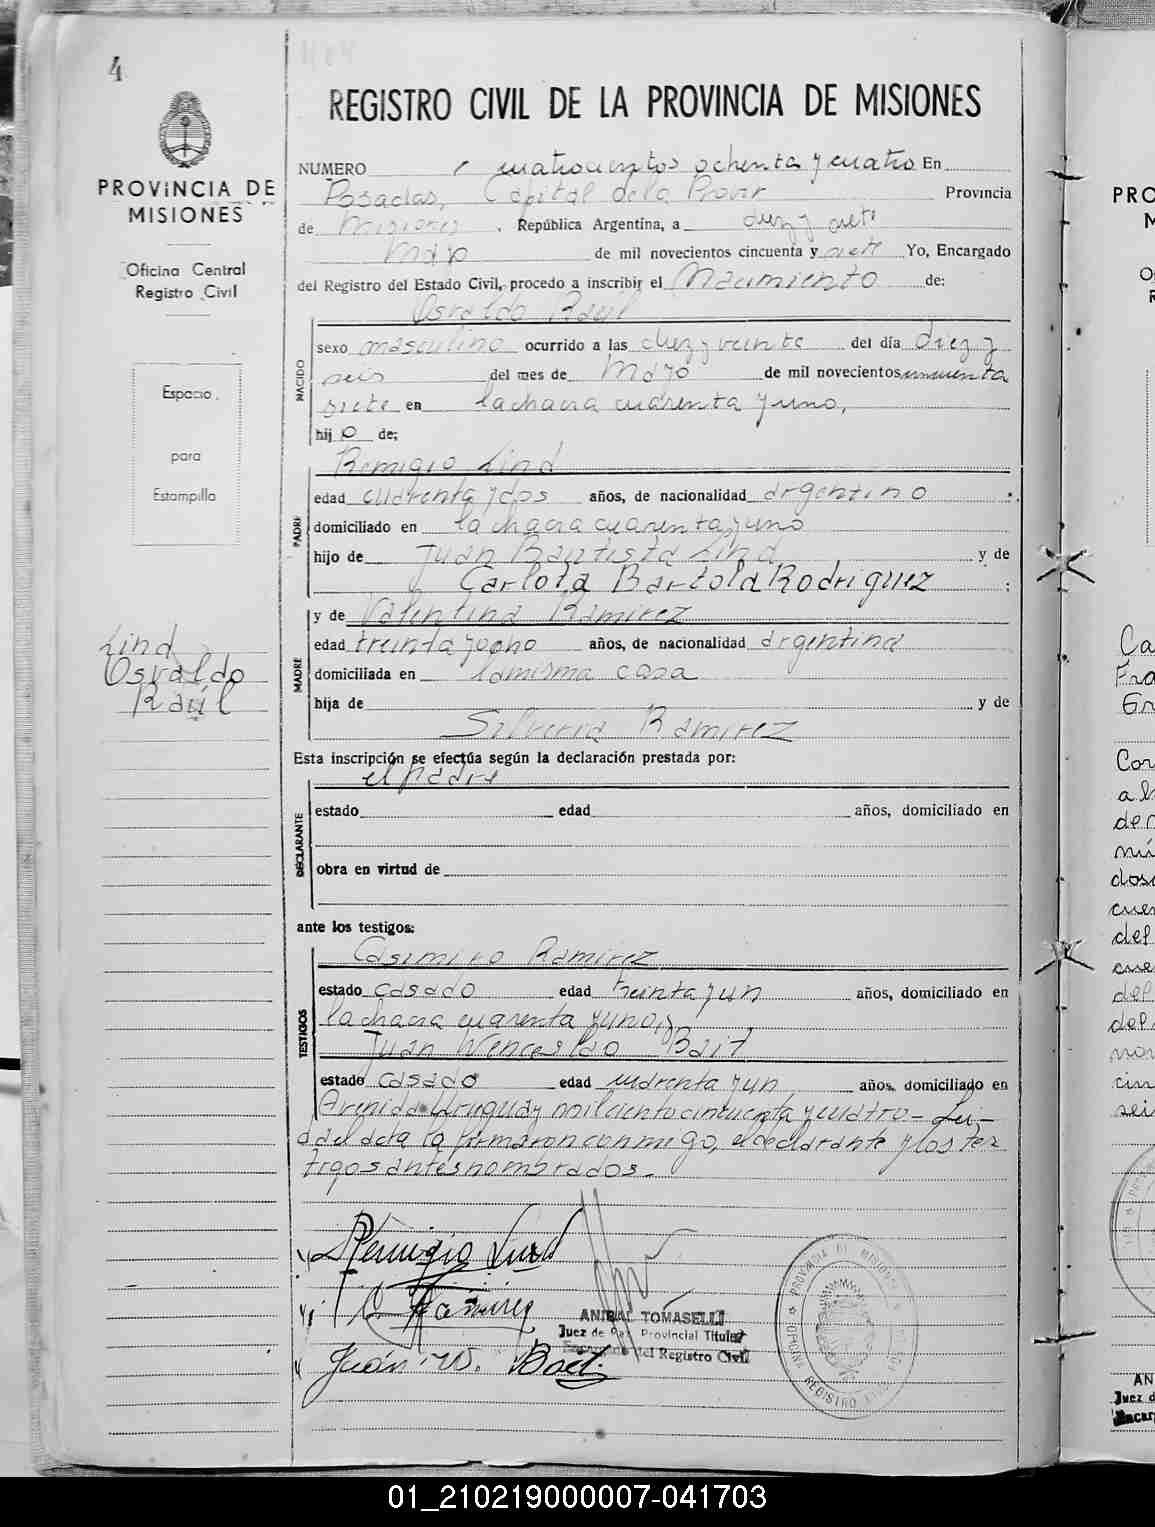 4
PROVINCIA DE
MISIONES
Oficina Central
Registro Civil
Espacio
para
Estampilla
Lind
Osvaldo
Raúl
REGISTRO CIVIL DE LA PROVINCIA DE MISIONES
NUMERO cuatrocientos ochenta y cuatro En
Posadas, Capital de la Provin Provincia
de Misiones, República Argentina, a diez y siete
Mayo de mil novecientos cincuenta y siete Yo, Encargado
del Registro del Estado Civil, procedo a inscribir el Nacimiento de:
Osvaldo Raúl
NACIDO
sexo masculino ocurrido a las diez y veinte del día diez y
seis del mes de Mayo de mil novecientos cincuenta
siete en la chacra cuarenta y uno,
hijo de;
Remigio Lind
PADRE
edad cuarenta y dos años, de nacionalidad argentino
domiciliado en la chacra cuarenta y uno
hijo de Juan Bautista Lind y de
Carlota Bartola Rodriguez ;
y de Valentina Ramirez
MADRE
edad treinta y ocho años, de nacionalidad argentina
domiciliada en la misma casa
hija de y de
Silveria Ramirez
Esta inscripción se efectúa según la declaración prestada por:
el padre
DECLARANTE
estado edad años, domiciliado en
obra en virtud de
ante los testigos:
Casimiro Ramirez
TESTIGOS
estado casado edad treinta y un años, domiciliado en
la chacra cuarenta y uno, y
Juan Wenceslao Bait
estado casado edad cuarenta y un años, domiciliado en
Avenida Uruguay mil ciento cincuenta y cuatro - Lei-
da el acta la firmaron conmigo, el declarante y los tes
tigos antes nombrados.-
Remigio Lind
C Ramirez
Juan W. Bait
ANIBAL TOMASELLI
Juez de Paz Provincial Titular
Encargado del Registro Civil
PROVINCIA DE MISIONES
OFICINA REGISTRO CIVIL
01_210219000007-041703